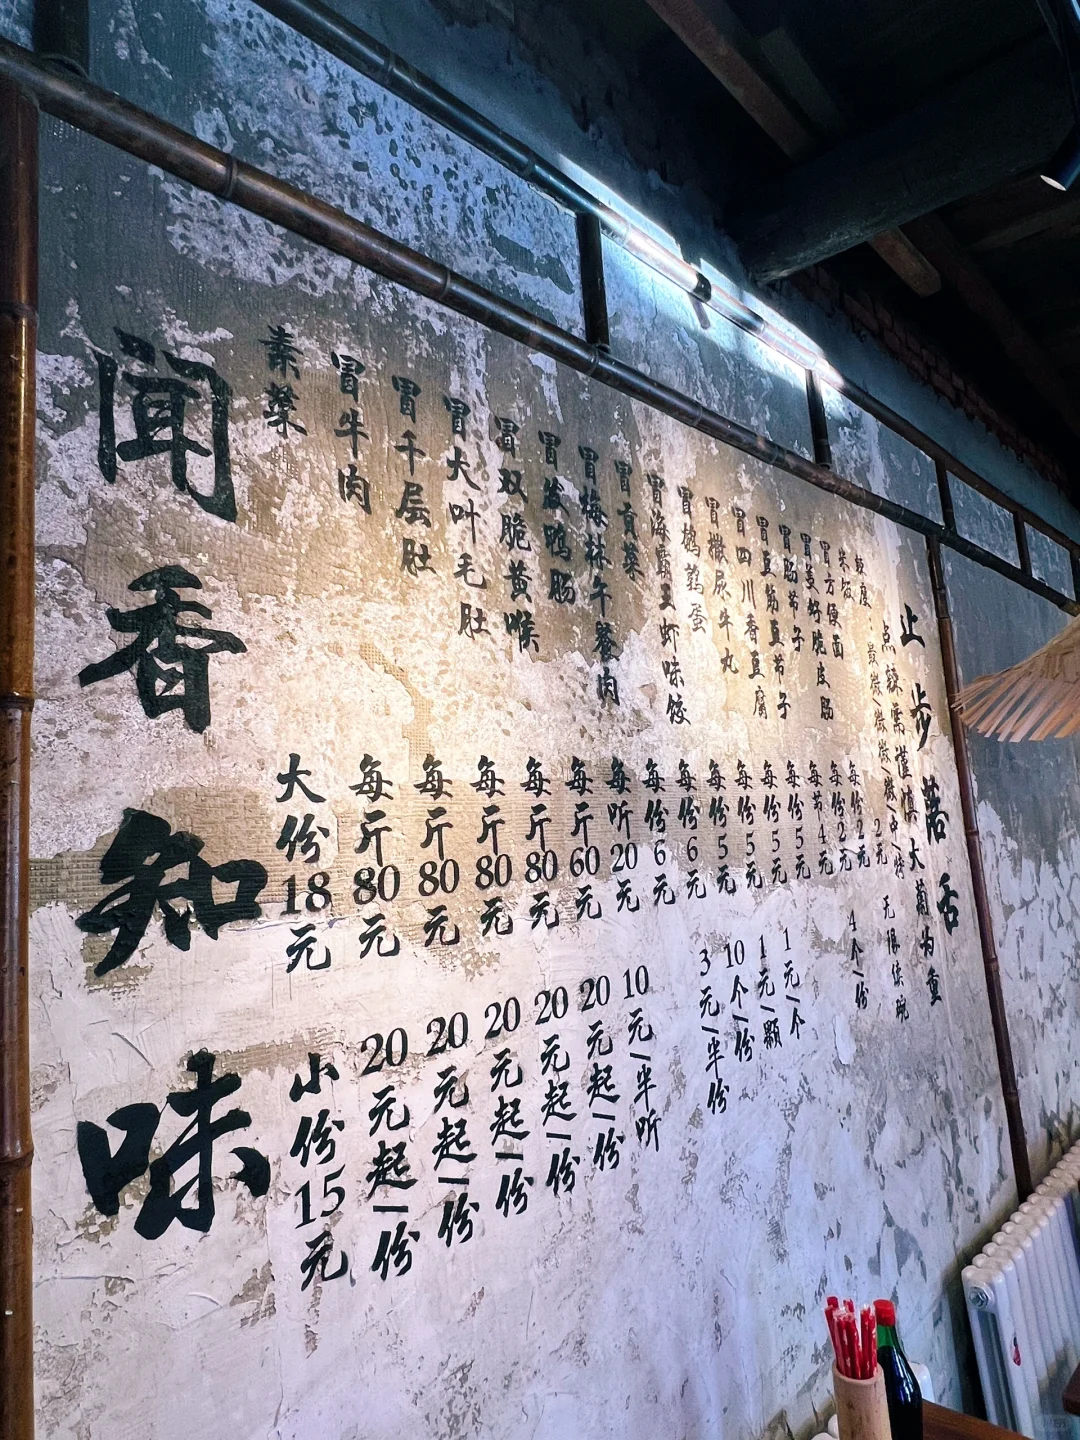 闻香知味
素菜 大份18元 小份15元
冒牛肉 每斤80元 20元起/一份
冒千层肚 每斤80元 20元起/一份
冒大叶毛肚 每斤80元 20元起/一份
冒双脆黄喉 每斤80元 20元起/一份
冒鸭肠 每斤60元 20元起/一份
冒梅林午餐肉 每听20元 10元/半听
冒贡菜 每份6元
冒海霸王虾味饺 每份6元 3元/半份
冒鹌鹑蛋 每份5元 10个/份
冒撒尿牛丸 每份5元 1元/颗
冒四川香豆腐 每份5元 1元/个
冒豆筋豆节子 每份5元
冒肠节子 每节4元
冒脆皮肠 每份2元
冒方便面 每份2元
米饭 2元 无限续碗
辣度:
点辣需谨慎 大菊为重
止步落舌